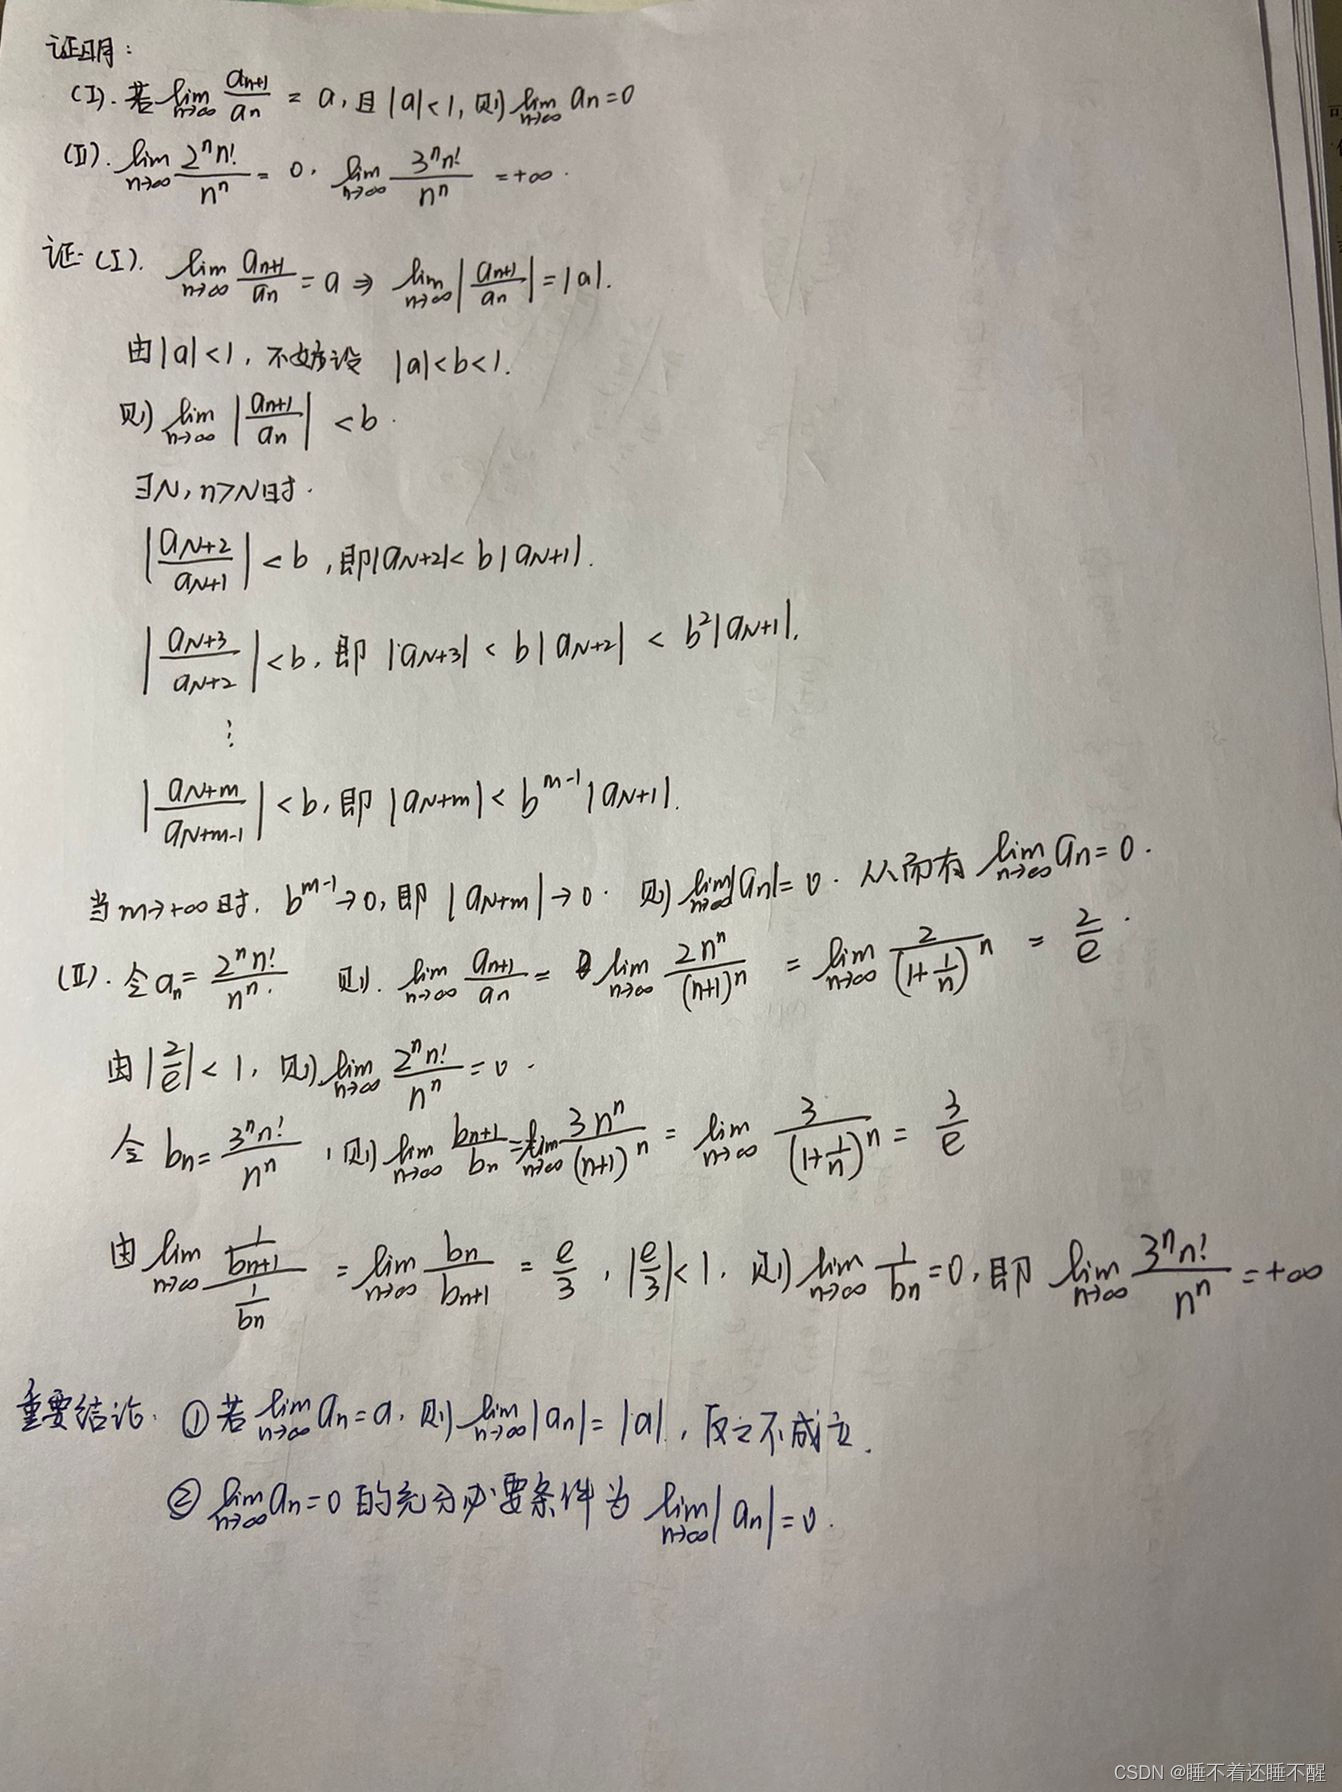 证明：
(I). 若 lim_{n→∞} a_{n+1}/a_n = a, 且 |a|<1, 则 lim_{n→∞} a_n = 0
(II). lim_{n→∞} 2^n n!/n^n = 0, lim_{n→∞} 3^n n!/n^n = +∞.
证: (I). lim_{n→∞} a_{n+1}/a_n = a ⇒ lim_{n→∞} |a_{n+1}/a_n| = |a|.
由 |a|<1, 不妨设 |a|<b<1.
则 lim_{n→∞} |a_{n+1}/a_n| < b.
∃N, n>N时.
|a_{N+2}/a_{N+1}| < b, 即 |a_{N+2}| < b|a_{N+1}|.
|a_{N+3}/a_{N+2}| < b, 即 |a_{N+3}| < b|a_{N+2}| < b^2|a_{N+1}|.
⋮
|a_{N+m}/a_{N+m-1}| < b, 即 |a_{N+m}| < b^{m-1}|a_{N+1}|.
当 m→+∞时, b^{m-1}→0, 即 |a_{N+m}|→0. 则 lim_{n→∞}|a_n| = 0. 从而有 lim_{n→∞} a_n = 0.
(II). 令 a_n = 2^n n!/n^n. 则. lim_{n→∞} a_{n+1}/a_n = lim_{n→∞} 2n^n/(n+1)^n = lim_{n→∞} 2/(1+1/n)^n = 2/e.
由 |2/e| < 1, 则 lim_{n→∞} 2^n n!/n^n = 0.
令 b_n = 3^n n!/n^n, 则 lim_{n→∞} b_{n+1}/b_n = lim_{n→∞} 3n^n/(n+1)^n = lim_{n→∞} 3/(1+1/n)^n = 3/e
由 lim_{n→∞} (1/b_{n+1})/(1/b_n) = lim_{n→∞} b_n/b_{n+1} = e/3, |e/3|<1, 则 lim_{n→∞} 1/b_n = 0, 即 lim_{n→∞} 3^n n!/n^n = +∞
重要结论: ① 若 lim_{n→∞} a_n = a, 则 lim_{n→∞}|a_n| = |a|, 反之不成立.
② lim_{n→∞} a_n = 0 的充分必要条件为 lim_{n→∞}|a_n| = 0.
CSDN @睡不着还睡不醒